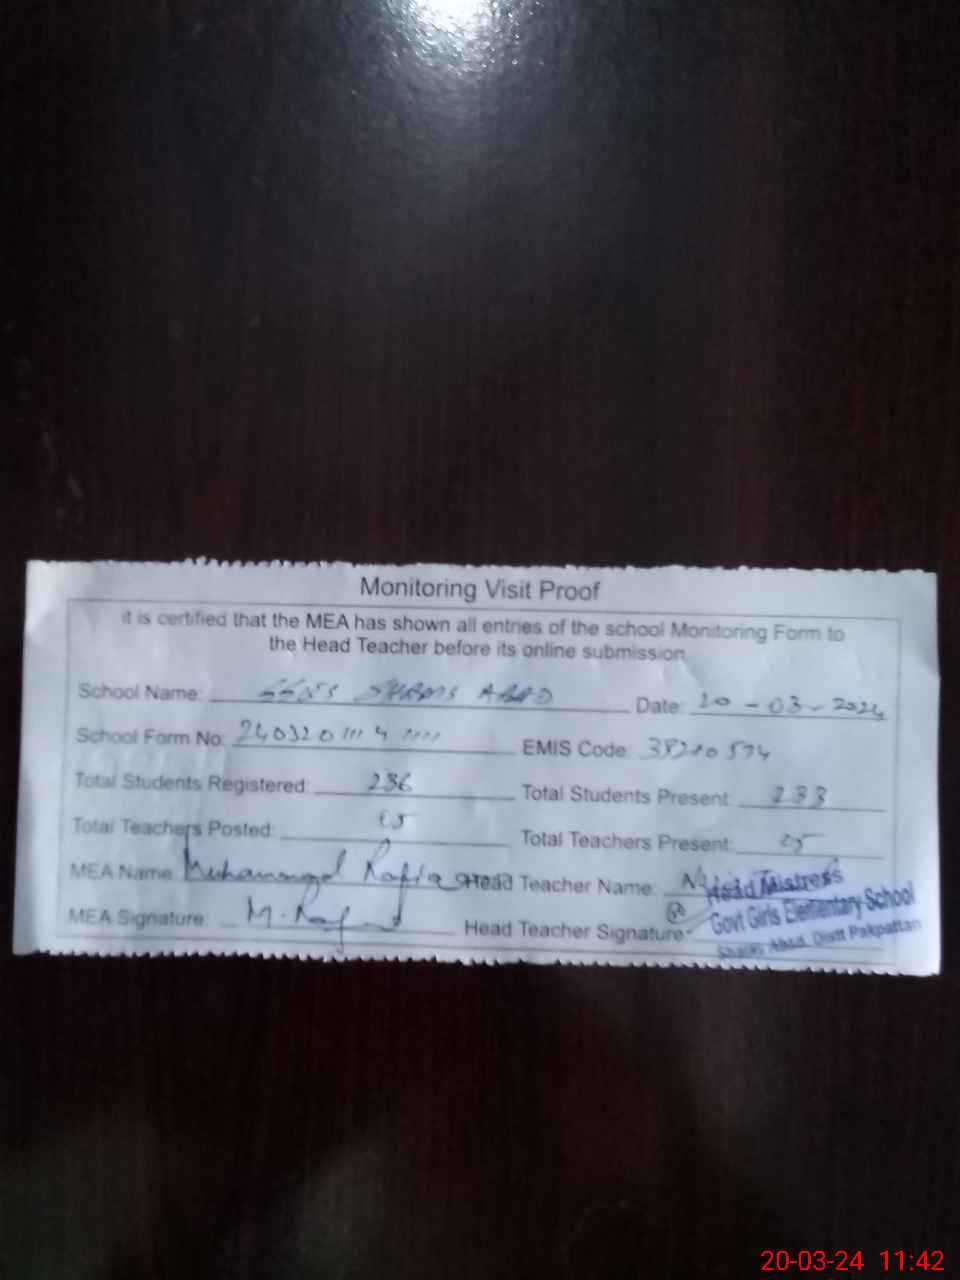 Monitoring Visit Proof
it is certified that the MEA has shown all entries of the school Monitoring Form to
the Head Teacher before its online submission.
School Name: SHAMS ABAD Date: 20-03-2024
School Form No: EMIS Code:
Total Students Registered: 236 Total Students Present: 233
Total Teachers Posted: 05 Total Teachers Present: 05
MEA Name Muhammad Rafiq Head Teacher Name:
MEA Signature: M. Head Teacher Signature:
Head Mistress
Govt Girls Elementary School
Shams Abad, Distt Pakpattan
20-03-24 11:42